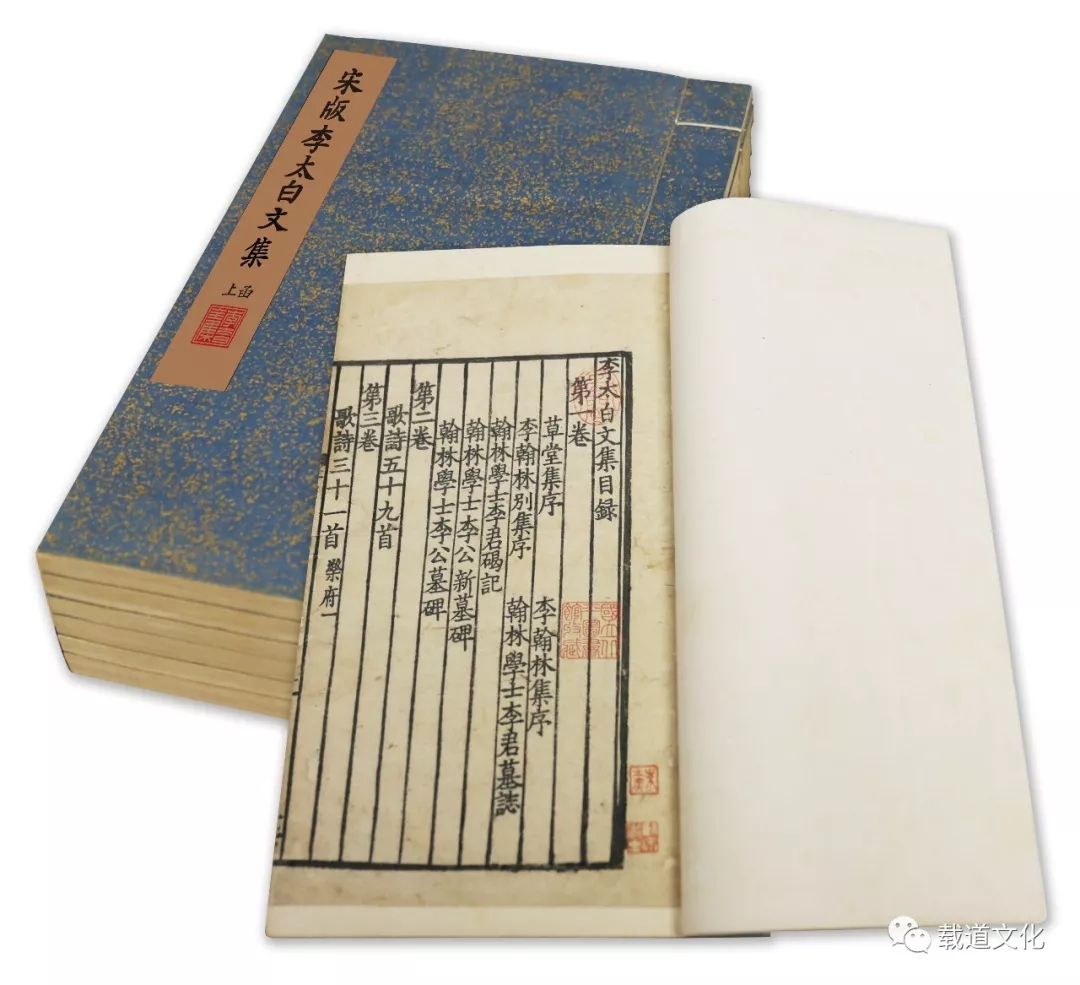 宋版李太白文集
上函
李太白文集目録
第一卷
草堂集序
李翰林集序
李翰林別集序
翰林學士李君墓誌
翰林學士李君碣記
翰林學士李公新墓碑
翰林學士李公墓碑
第二卷
歌詩五十九首
第三卷
歌詩三十一首 樂府一
载道文化